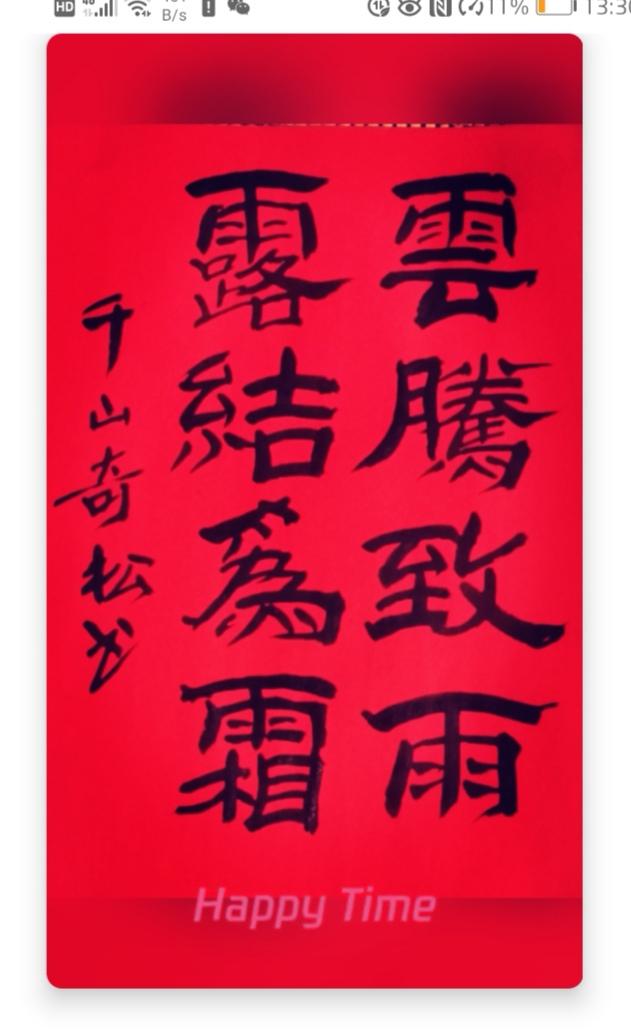 HD 4G B/s 11% 13:30
雲騰致雨
露結為霜
千山奇松书
Happy Time